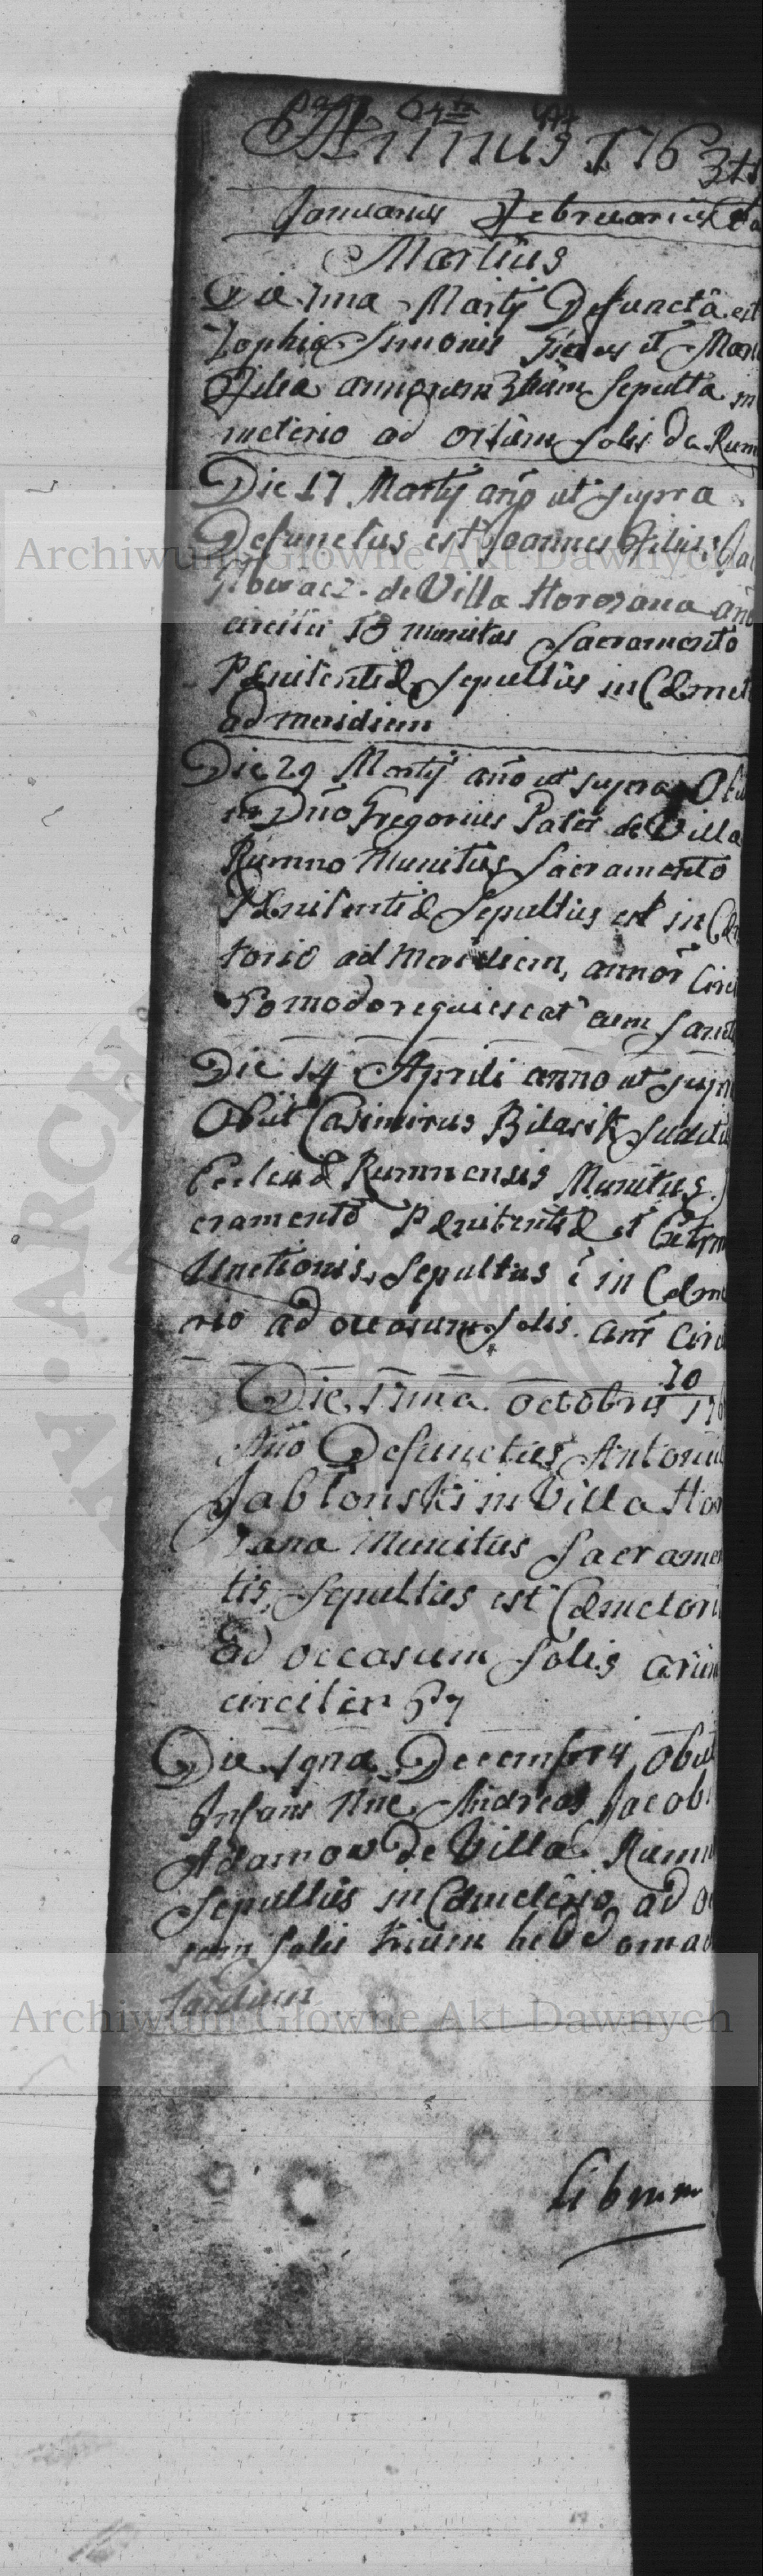 Annus 1763
Januarius Februarius
Martius
Die 1ma Martÿ Defuncta est
Zophia Simonis et
Filia annorum 3ium Sepulta in
meterio ad ortum Solis de Rum
Die 17 Martÿ año ut supra
Defunctus est Joannes Filius
de Villa Horozana año
circiter 13 munitus Sacramento
Pænitentiæ, Sepultus in Cæmet
ad meridiem
Die 29 Martÿ año ut supra Obii
in Dño Gregorius Pater de Villa
Rumno Munitus Sacramento
Pænitentiæ Sepultus est in Cæ
torio ad Meridiem, annor Circi
modo requiescat cum Sanct
Die 14 Aprili anno ut supr
Obiit Casimirus Bilasik
Eccliæ Rumnensis Munitus
cramento Pænitentiæ et Extrem
Unctionis, Sepultus ē in Cæme
rio ad occasum Solis. anr Circi
70
Die 17ma Octobris 176
Año Defunctus Antoniu
Jabłonski in Villa Hor
zana Munitus Sacramen
tis, Sepultus est Cæmetori
ad occasum Solis
circiter 57
Die 19na Decembris Obiit
Infans Nne Andreas Jacobi
Adamow De Villa Rumn
Sepultus in Cæmeterio ad o
sum Solis trium hebdomad
Librum
Archiwum Główne Akt Dawnych
Archiwum Główne Akt Dawnych